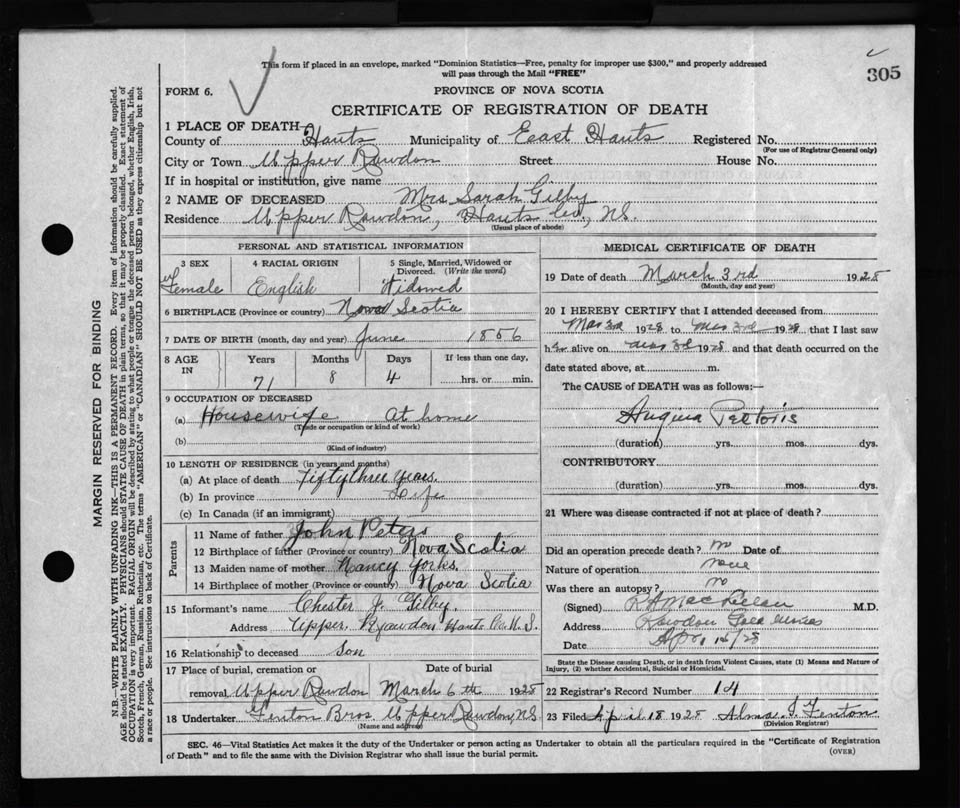 305
This form if placed in an envelope, marked "Dominion Statistics—Free, penalty for improper use $300," and properly addressed
will pass through the Mail "FREE"
FORM 6.
PROVINCE OF NOVA SCOTIA
CERTIFICATE OF REGISTRATION OF DEATH
1 PLACE OF DEATH
County of Hants Municipality of East Hants Registered No.
(For use of Registrar General only)
City or Town Upper Rawdon Street House No.
If in hospital or institution, give name
2 NAME OF DECEASED Mrs Sarah Gilby
Residence Upper Rawdon, Hants Co., N.S.
(Usual place of abode)
PERSONAL AND STATISTICAL INFORMATION
3 SEX 4 RACIAL ORIGIN 5 Single, Married, Widowed or
Divorced. (Write the word)
Female English Widowed
6 BIRTHPLACE (Province or country) Nova Scotia
7 DATE OF BIRTH (month, day and year) June 1856
8 AGE IN Years Months Days If less than one day,
71 8 4 hrs. or min.
9 OCCUPATION OF DECEASED
(a) Housewife At home
(Trade or occupation or kind of work)
(b)
(Kind of industry)
10 LENGTH OF RESIDENCE (in years and months)
(a) At place of death Fiftythree years.
(b) In province Life
(c) In Canada (if an immigrant)
Parents
11 Name of father John Peters
12 Birthplace of father (Province or country) Nova Scotia
13 Maiden name of mother Nancy Yorks.
14 Birthplace of mother (Province or country) Nova Scotia
15 Informant's name Chester J. Gilby.
Address Upper Rawdon Hants Co. N.S.
16 Relationship to deceased son
17 Place of burial, cremation or Date of burial
removal Upper Rawdon March 6th 1928
18 Undertaker Fenton Bros. Upper Rawdon, N.S.
(Name and address)
MEDICAL CERTIFICATE OF DEATH
19 Date of death March 3rd 1928
(Month, day and year)
20 I HEREBY CERTIFY that I attended deceased from
Mar 3rd 1928 to Mar 3rd 1928 that I last saw
her alive on Mar 3rd 1928 and that death occurred on the
date stated above, at m.
The CAUSE of DEATH was as follows:
Angina Pectoris
(duration) yrs. mos. dys.
CONTRIBUTORY
(duration) yrs. mos. dys.
21 Where was disease contracted if not at place of death?
Did an operation precede death? no Date of
Nature of operation none
Was there an autopsy? no
(Signed) M.D.
Address Rawdon Gold Mines
Date 28
State the Disease causing Death, or in death from Violent Causes, state (1) Means and Nature of
Injury, (2) whether Accidental, Suicidal or Homicidal.
22 Registrar's Record Number 14
23 Filed April 18 1928 Alma I. Fenton
(Division Registrar)
SEC. 46—Vital Statistics Act makes it the duty of the Undertaker or person acting as Undertaker to obtain all the particulars required in the "Certificate of Registration
of Death" and to file the same with the Division Registrar who shall issue the burial permit.
(OVER)
MARGIN RESERVED FOR BINDING
N.B.—WRITE PLAINLY WITH UNFADING INK—THIS IS A PERMANENT RECORD. Every item of information should be carefully supplied.
AGE should be stated EXACTLY. PHYSICIANS should STATE CAUSE OF DEATH in plain terms, so that it may be properly classified. Exact statement of
OCCUPATION is very important. RACIAL ORIGIN will be described by stating to what people or tongue the deceased person belonged, whether English, Irish,
Scotch, French, German, Russian, Ruthenian, etc. The terms "AMERICAN" or "CANADIAN" SHOULD NOT BE USED as they express citizenship but not
a race or people. See instructions on back of Certificate.